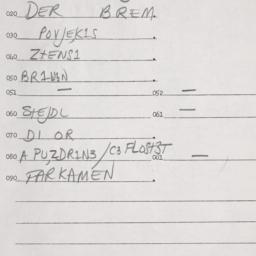 020 DER BREM.
030 POVJEKIS.
040 ZTENSI.
050 BRIVIN.
051 — 052 —
060 STEJDL 061 —
070 DI OR.
080 A PUZDRINS/C3 FLOSTST 001 —
090 FARKAMEN.